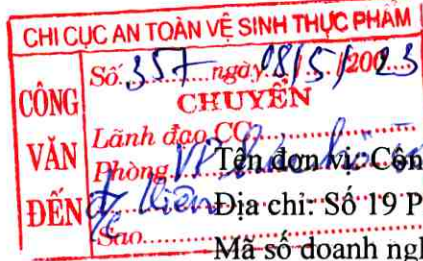 CHI CỤC AN TOÀN VỆ SINH THỰC PHẨM
CÔNG VĂN ĐẾN
Số: 357 ngày 08/5/20023
CHUYỂN
Lãnh đạo CC
Phòng VP
Sao
Tên đơn vị: Côn
Địa chỉ: Số 19 P
Mã số doanh ngh